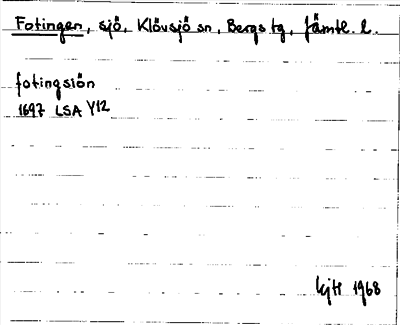 Fotingen, sjö, Klövsjö sn, Bergs tg, Jämtl. l.
fotingsiön
1697 LSA Y12
1968